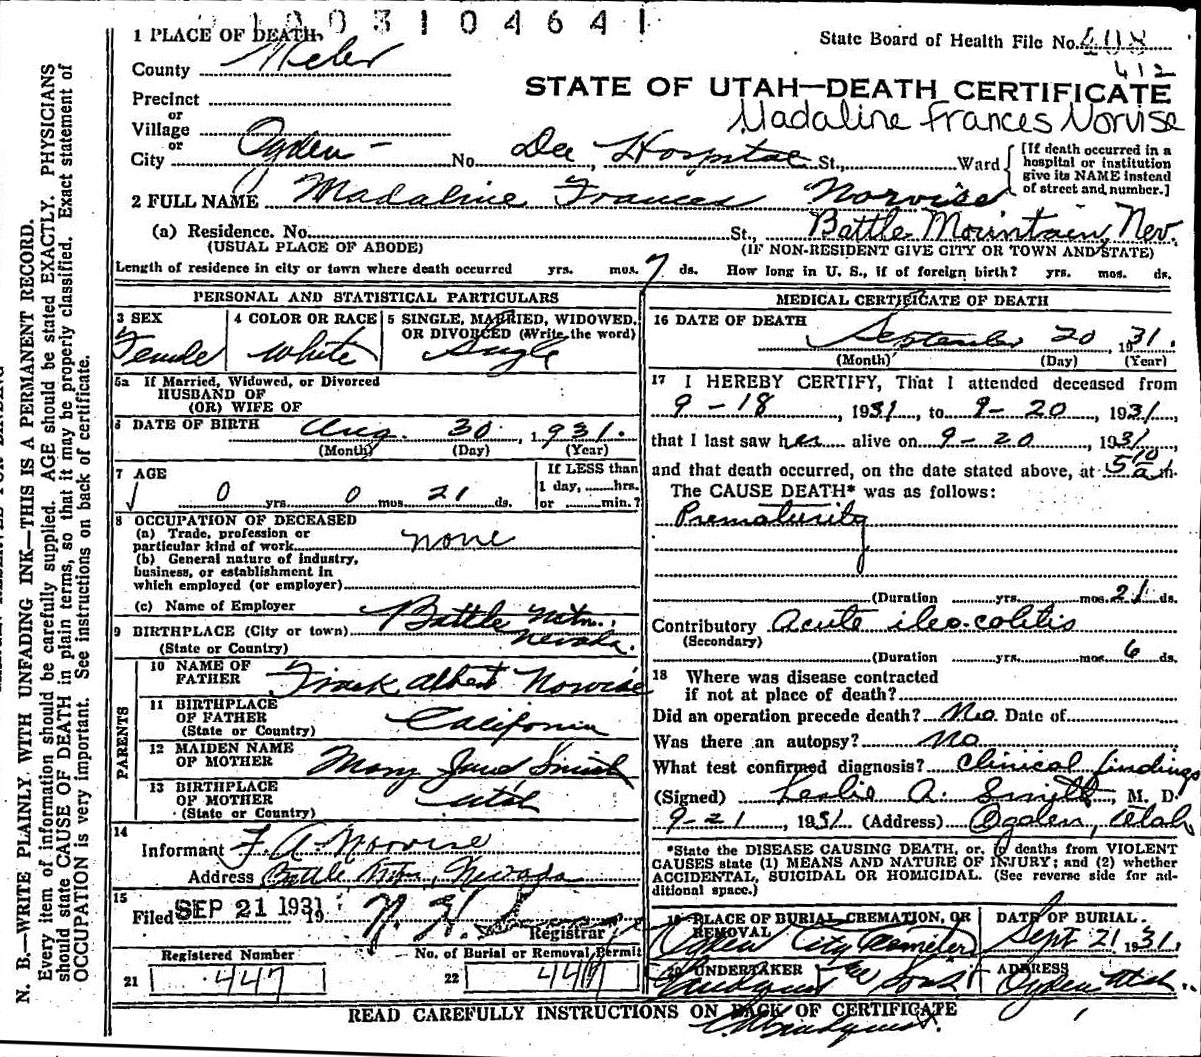 1003104641
1 PLACE OF DEATH
State Board of Health File No. 408
412
County Weber
STATE OF UTAH—DEATH CERTIFICATE
Precinct
or
Village
Madaline Frances Norvise
or
City Ogden - No. Dee Hospital St., Ward
[If death occurred in a hospital or institution give its NAME instead of street and number.]
2 FULL NAME Madaline Frances Norvise
(a) Residence. No. St., Battle Mountain, Nev.
(USUAL PLACE OF ABODE) (IF NON-RESIDENT GIVE CITY OR TOWN AND STATE)
Length of residence in city or town where death occurred yrs. mos. 7 ds. How long in U. S., if of foreign birth? yrs. mos. ds.
PERSONAL AND STATISTICAL PARTICULARS
3 SEX
Female
4 COLOR OR RACE
White
5 SINGLE, MARRIED, WIDOWED,
OR DIVORCED (Write the word)
Single
5a If Married, Widowed, or Divorced
HUSBAND OF
(OR) WIFE OF
6 DATE OF BIRTH Aug. 30, 1931.
(Month) (Day) (Year)
7 AGE
0 yrs. 0 mos. 21 ds.
If LESS than
1 day, ......hrs.
or ......min.?
8 OCCUPATION OF DECEASED
(a) Trade, profession or
particular kind of work none
(b) General nature of industry,
business, or establishment in
which employed (or employer)
(c) Name of Employer
9 BIRTHPLACE (City or town) Battle Mtn.,
(State or Country) Nevada.
PARENTS
10 NAME OF
FATHER Frank Albert Norvise
11 BIRTHPLACE
OF FATHER California
(State or Country)
12 MAIDEN NAME
OF MOTHER Mary Jane Smith
13 BIRTHPLACE
OF MOTHER Utah
(State or Country)
14
Informant F. A. Norvise
Address Battle Mtn., Nevada
15
Filed SEP 21 1931 19
Registrar
Registered Number
21 447
No. of Burial or Removal Permit
22 444
MEDICAL CERTIFICATE OF DEATH
16 DATE OF DEATH
September 20, 1931.
(Month) (Day) (Year)
17 I HEREBY CERTIFY, That I attended deceased from
9-18, 1931, to 9-20, 1931,
that I last saw her alive on 9-20, 1931
and that death occurred, on the date stated above, at 5 10 a m.
The CAUSE DEATH* was as follows:
Prematurity
(Duration yrs. mos. 21 ds.
Contributory Acute ileo-colitis
(Secondary)
(Duration yrs. mos. 6 ds.
18 Where was disease contracted
if not at place of death?
Did an operation precede death? No Date of
Was there an autopsy? No
What test confirmed diagnosis? Clinical findings
(Signed) Leslie A. Smith, M. D.
9-21, 1931 (Address) Ogden, Utah
*State the DISEASE CAUSING DEATH, or, if deaths from VIOLENT
CAUSES state (1) MEANS AND NATURE OF INJURY; and (2) whether
ACCIDENTAL, SUICIDAL OR HOMICIDAL. (See reverse side for ad-
ditional space.)
19 PLACE OF BURIAL, CREMATION, OR
REMOVAL
Ogden City Cemetery
DATE OF BURIAL
Sept 21 1931.
20 UNDERTAKER
Lindquist & Sons
ADDRESS
Ogden Utah.
READ CAREFULLY INSTRUCTIONS ON BACK OF CERTIFICATE
N. B.—WRITE PLAINLY WITH UNFADING INK—THIS IS A PERMANENT RECORD.
Every item of information should be carefully supplied. AGE should be stated EXACTLY. PHYSICIANS
should state CAUSE OF DEATH in plain terms, so that it may be properly classified. Exact statement of
OCCUPATION is very important. See instructions on back of certificate.